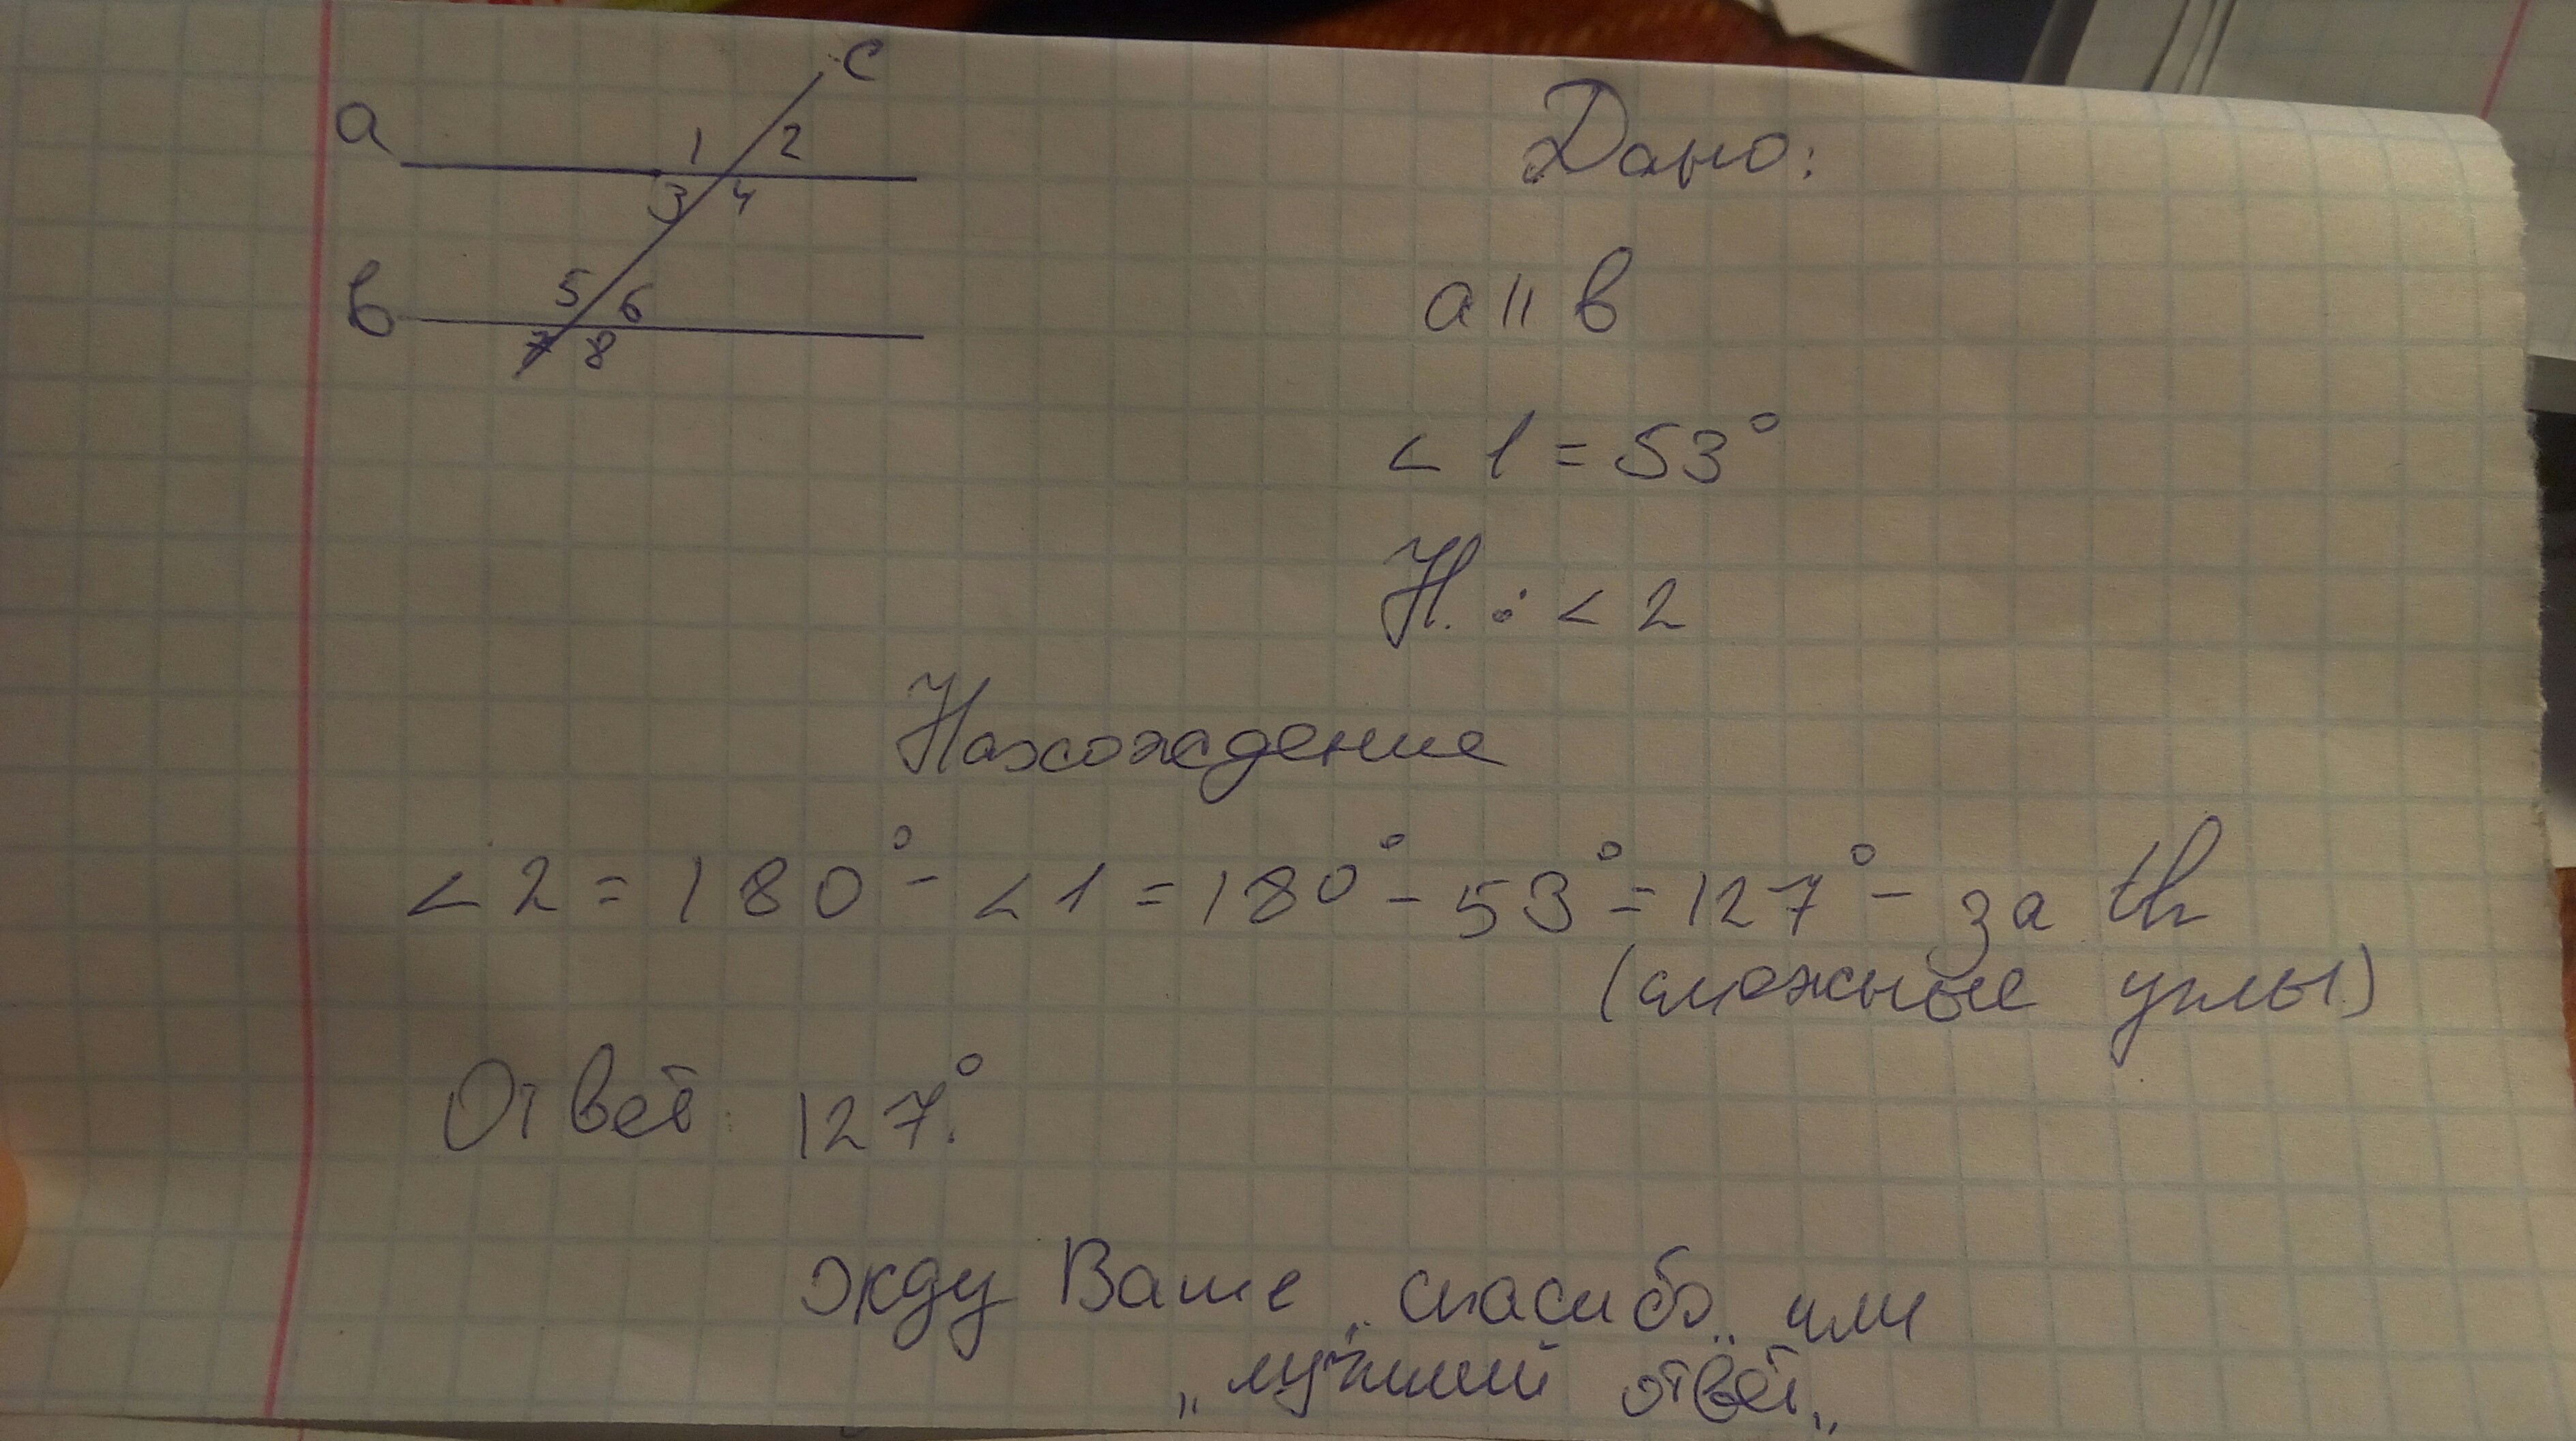 c
a 1 2
3 4
в 5 6
7 8
Дано:
a || в
< 1 = 53°
Н. : < 2
Нахождение
< 2 = 180° - < 1 = 180° - 53° = 127° - за th
(смежные углы)
Ответ: 127°.
Жду Ваше „спасибо„ или
„лучший ответ„